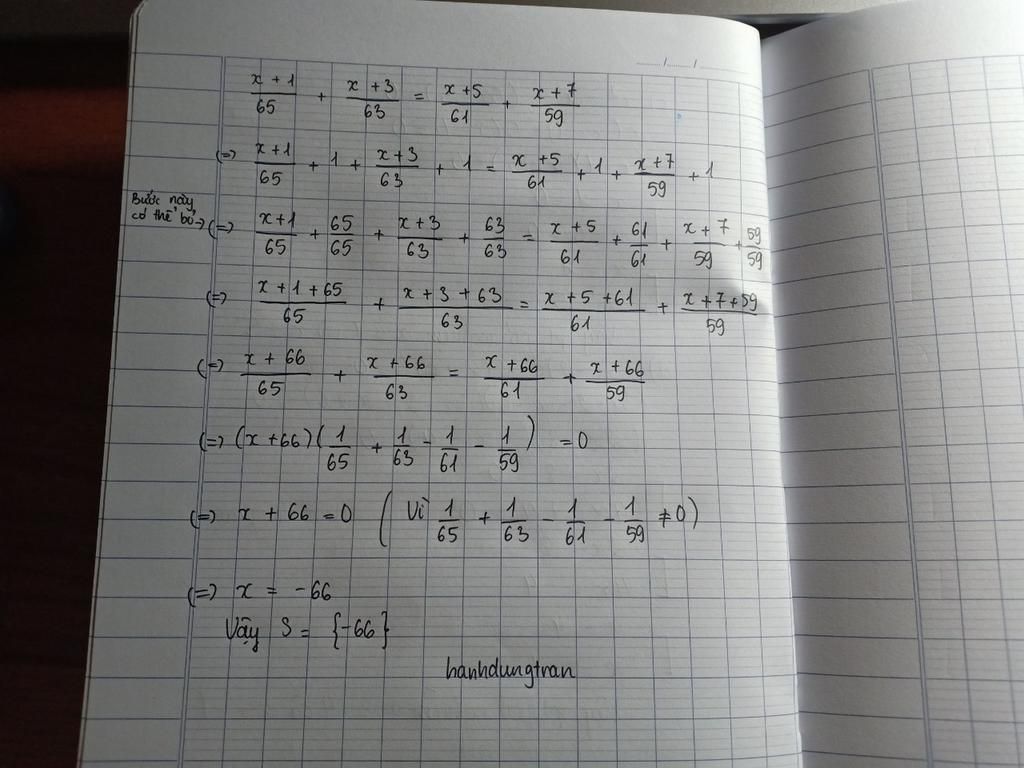 ..../..../....
x + 1/65 + x + 3/63 = x + 5/61 + x + 7/59
(=) x + 1/65 + 1 + x + 3/63 + 1 = x + 5/61 + 1 + x + 7/59 + 1
Bước này
có thể bỏ → (=) x + 1/65 + 65/65 + x + 3/63 + 63/63 = x + 5/61 + 61/61 + x + 7/59 + 59/59
(=) x + 1 + 65/65 + x + 3 + 63/63 = x + 5 + 61/61 + x + 7 + 59/59
(=) x + 66/65 + x + 66/63 = x + 66/61 + x + 66/59
(=) (x + 66) (1/65 + 1/63 - 1/61 - 1/59) = 0
(=) x + 66 = 0 (Vì 1/65 + 1/63 - 1/61 - 1/59 ≠ 0)
(=) x = -66
Vậy S = {-66}
hanhdungtran